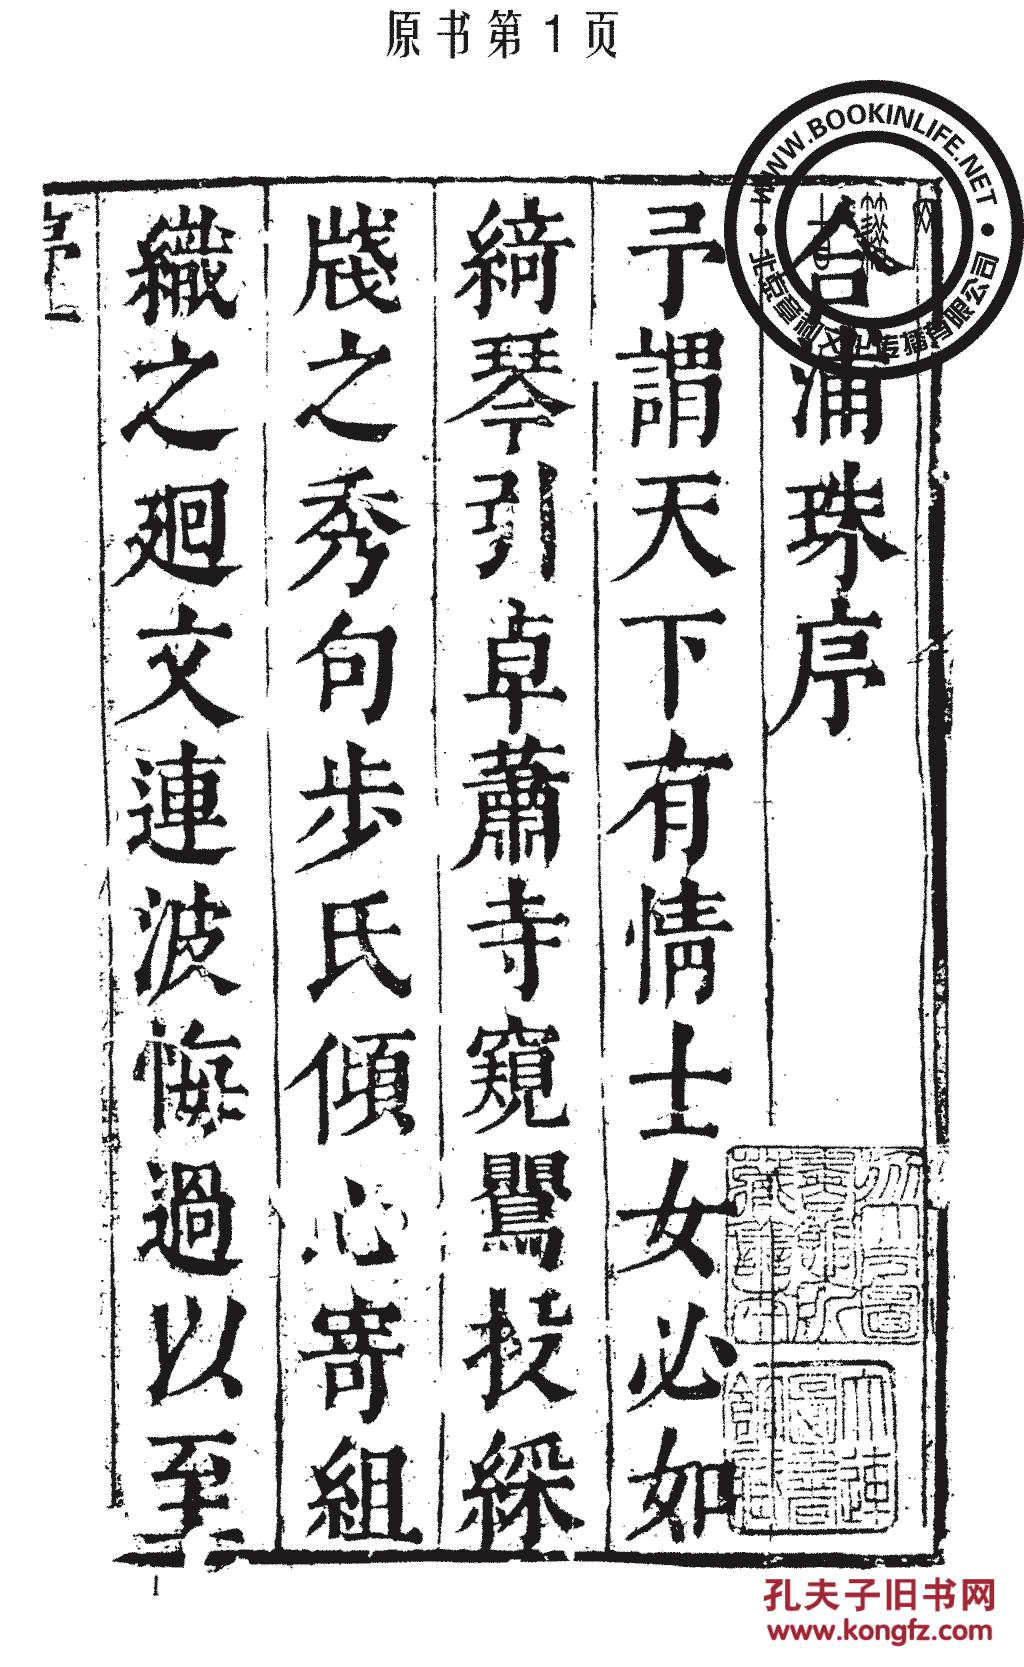 原书第1页
WWW.BOOKINLIFE.NET
合浦珠序
予謂天下有情士女必如
綺琴引卓蕭寺窺鸎投綵
牋之秀句步氏傾心寄組
織之廻文連波悔過以至
孔夫子旧书网
www.kongfz.com